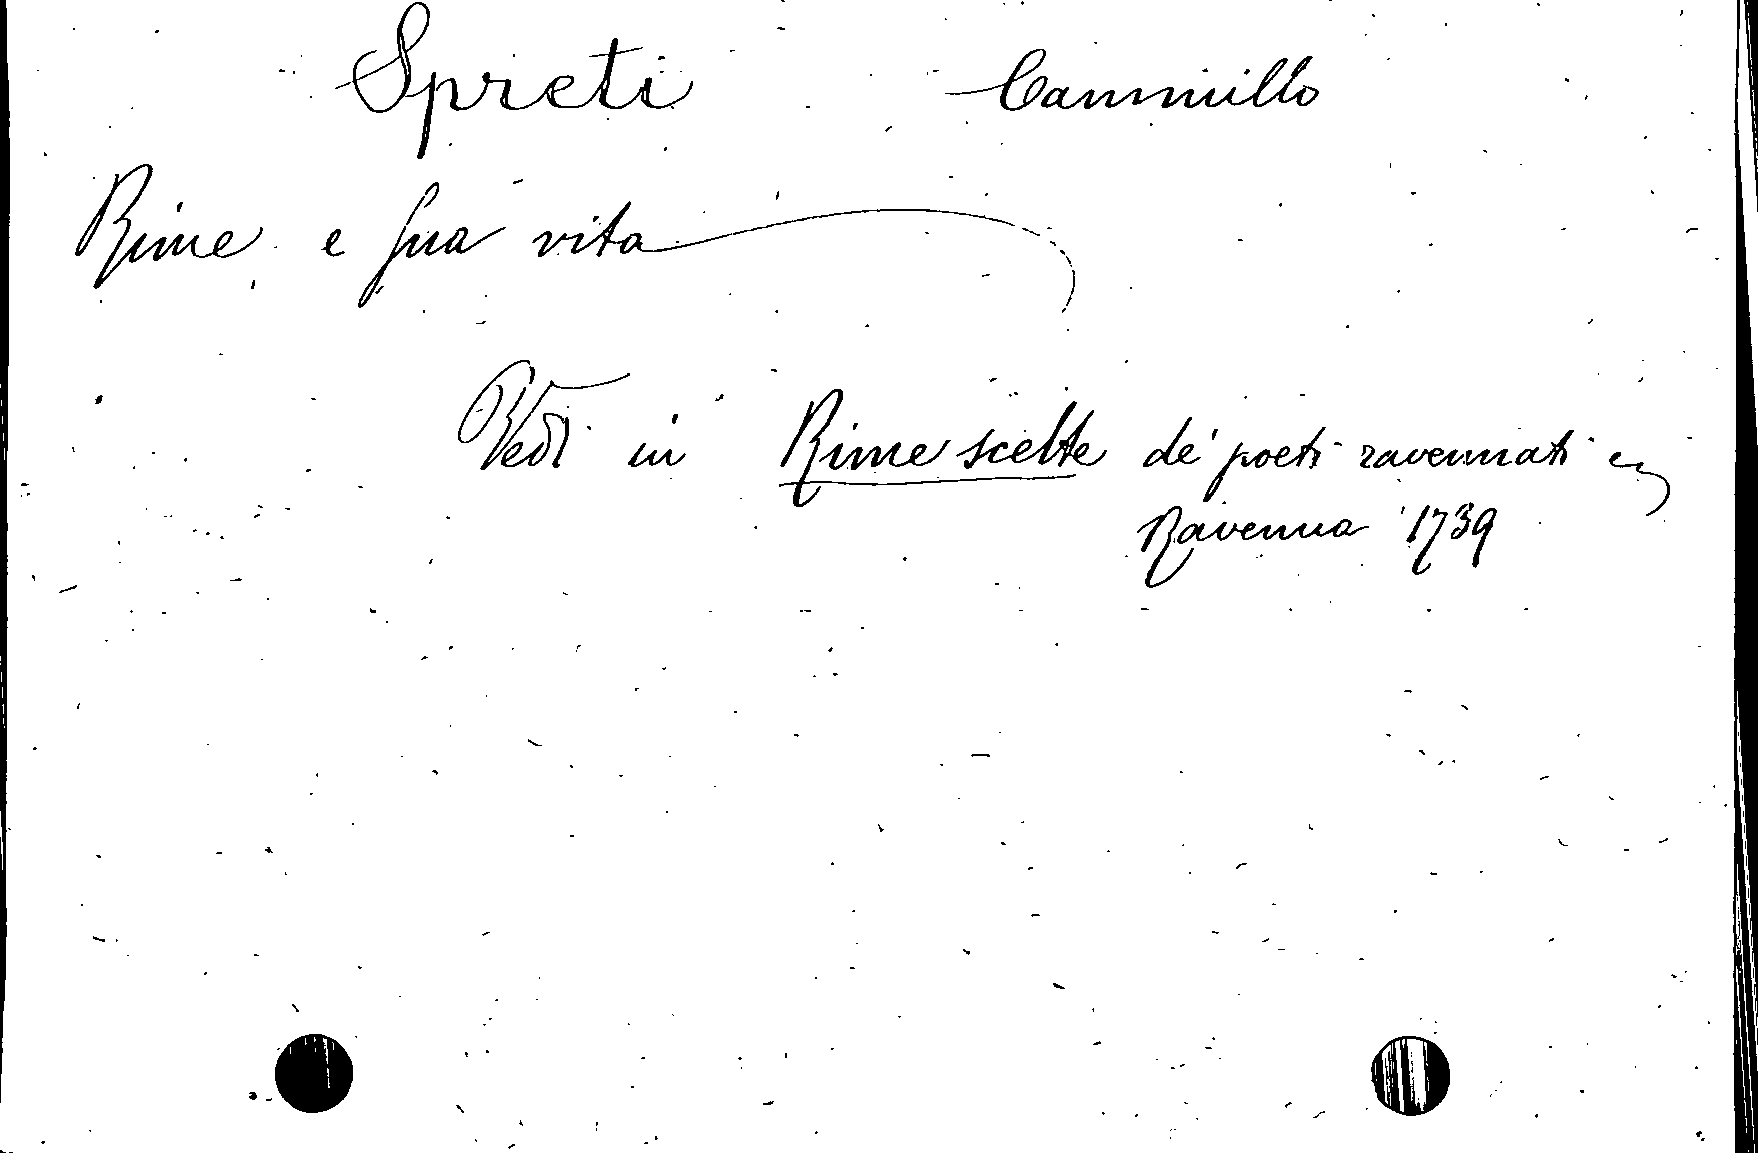 Spreti Cammillo
Rime e sua vita
Vedi in Rime scelte de' poeti ravennati
Ravenna 1739